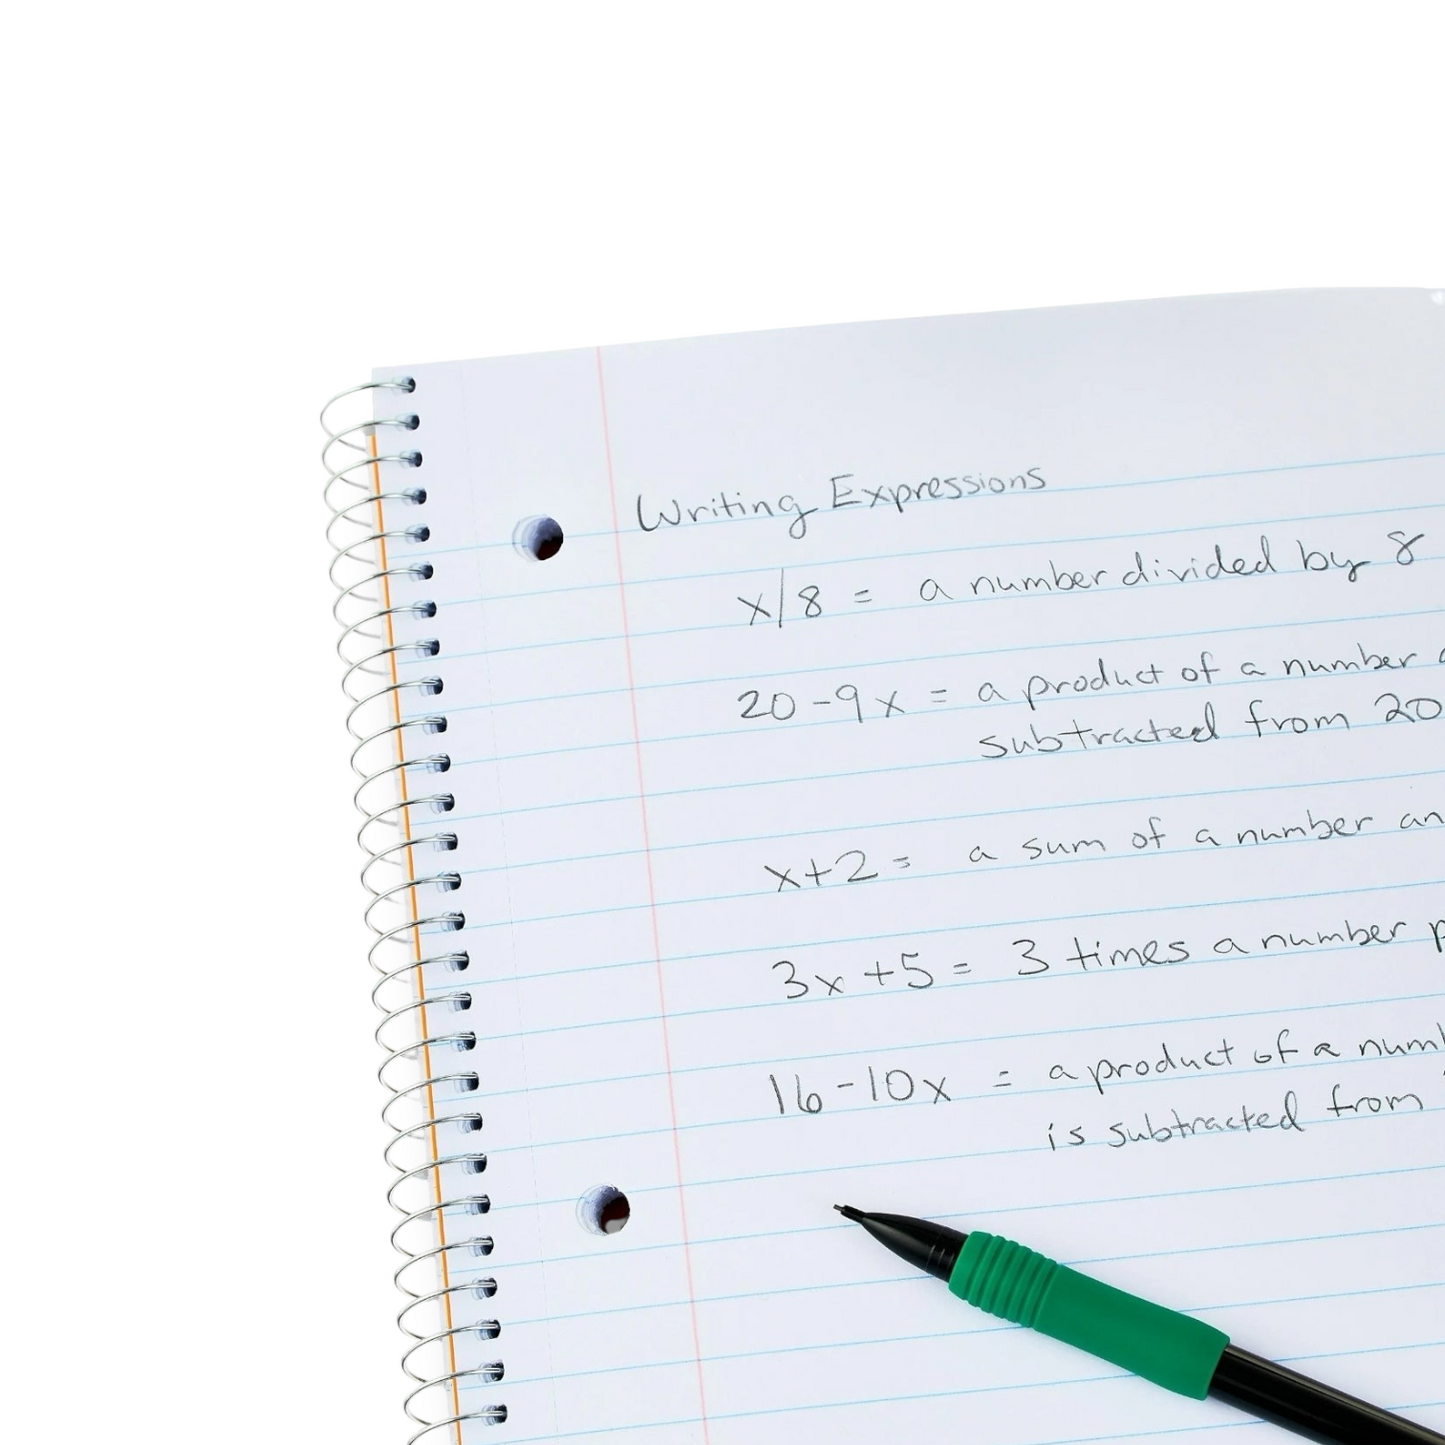 Writing Expressions
x/8 = a number divided by 8
20-9x = a product of a number
subtracted from 20
x+2= a sum of a number an
3x+5= 3 times a number p
16-10x = a product of a numb
is subtracted from